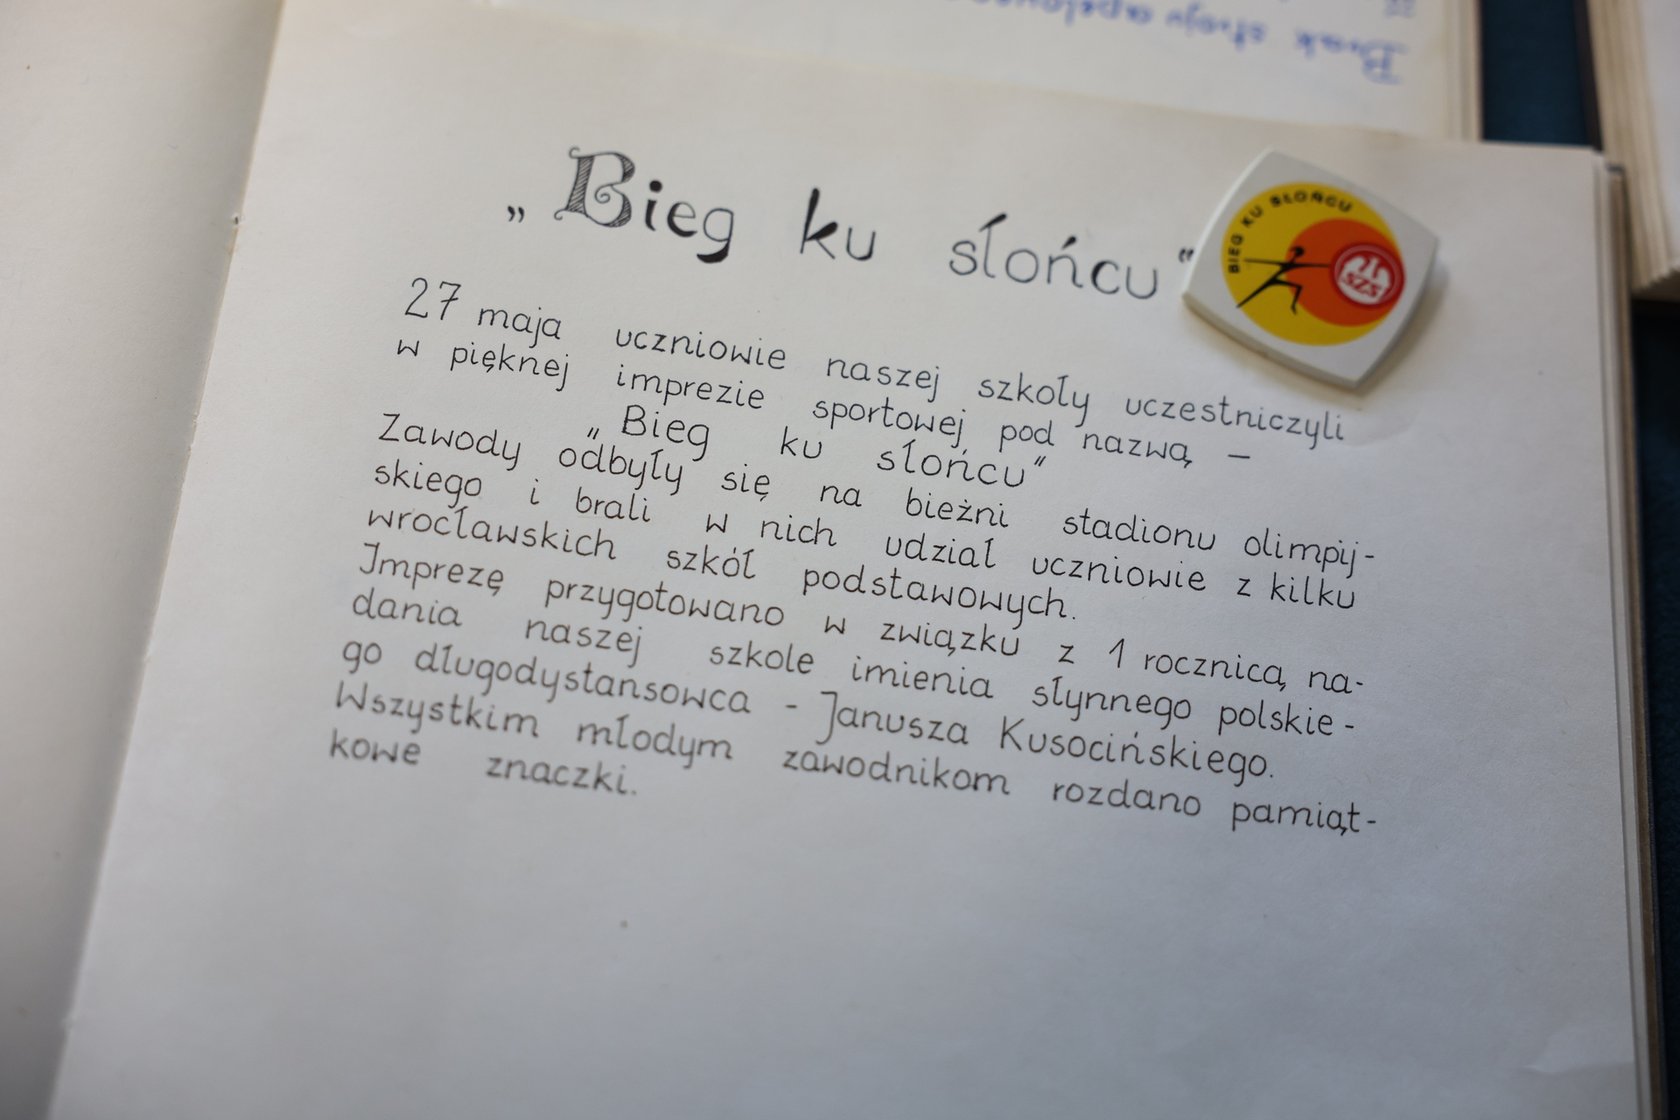 Brak stroju apelowe
„Bieg ku słońcu"
BIEG KU SŁOŃCU
SZS
27 maja uczniowie naszej szkoły uczestniczyli
w pięknej imprezie sportowej pod nazwą –
„Bieg ku słońcu"
Zawody odbyły się na bieżni stadionu olimpij-
skiego i brali w nich udział uczniowie z kilku
wrocławskich szkół podstawowych.
Imprezę przygotowano w związku z 1 rocznicą na-
dania naszej szkole imienia słynnego polskie-
go długodystansowca - Janusza Kusocińskiego.
Wszystkim młodym zawodnikom rozdano pamiąt-
kowe znaczki.